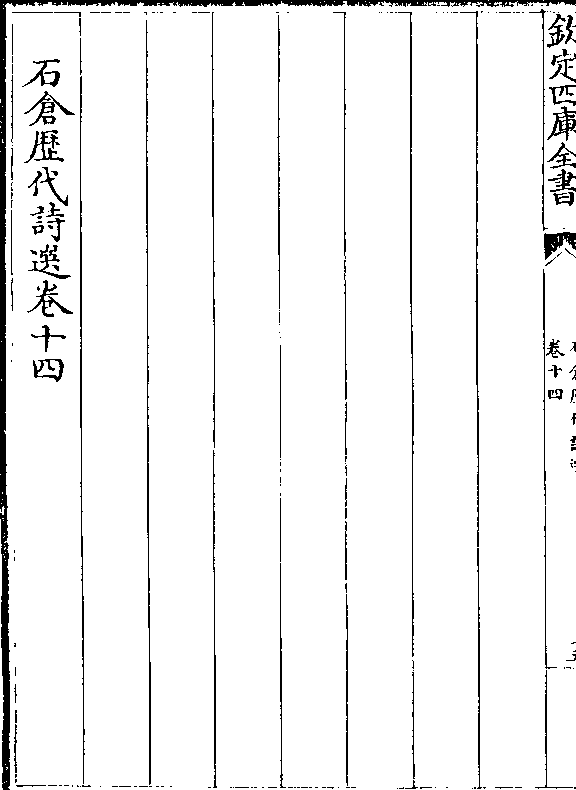 欽定四庫全書
石倉歷代詩選
卷十四
石倉歷代詩選卷十四